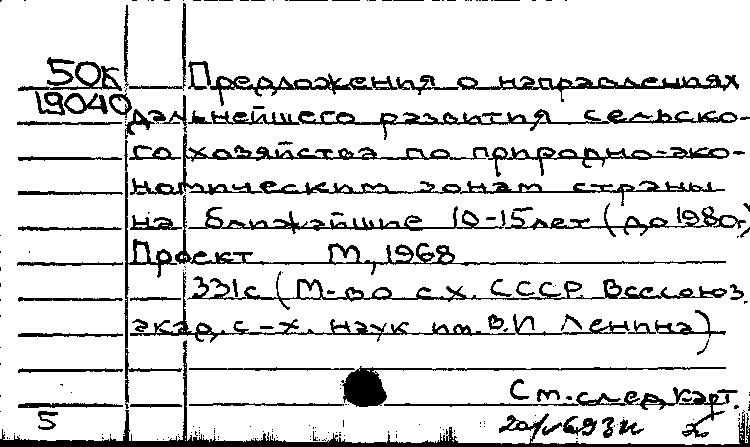 50К Предложения о направлениях
19040 дальнейшего развития сельско-
го хозяйства по природно-эко-
номическим зонам страны
на ближайшие 10-15 лет (до 1980г.)
Проект М., 1968
331с (М-во с.х. СССР. Всесоюз.
акад. с-х. наук им. В.И. Ленина)
См. след. карт.
5